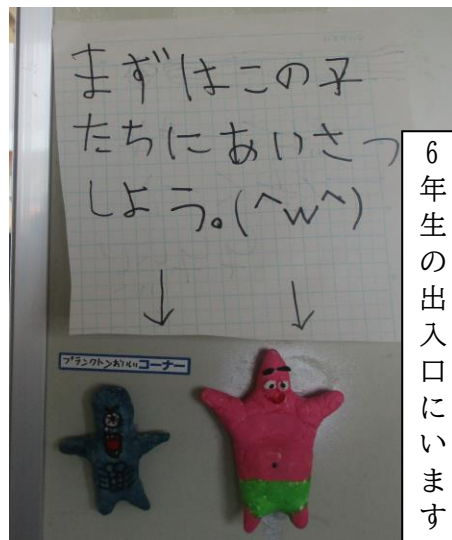 まずはこの子
たちにあいさつ
しよう。(^w^)
プランクトンおいしいコーナー
6年生の出入口にいます